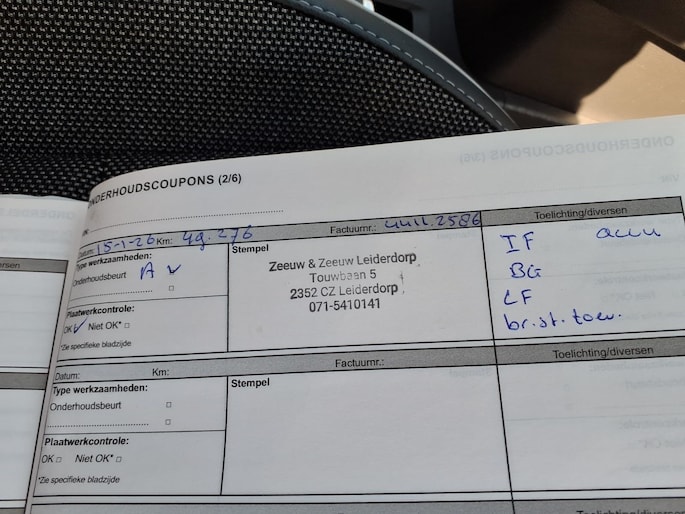 ONDERHOUDSCOUPONS (2/6)
Datum: 15-1-26 Km: 49.276 Factuurnr.: Toelichting/diversen
Type werkzaamheden:
Onderhoudsbeurt A ✓
Plaatwerkcontrole:
OK ✓ Niet OK* □
*Zie specifieke bladzijde
Stempel
Zeeuw & Zeeuw Leiderdorp
Touwbaan 5
2352 CZ Leiderdorp
071-5410141
IF accu
BG
LF
br.st.toev.
Datum: Km: Factuurnr.: Toelichting/diversen
Type werkzaamheden:
Onderhoudsbeurt □
Plaatwerkcontrole:
OK □ Niet OK* □
*Zie specifieke bladzijde
Stempel
Toelichting/diversen